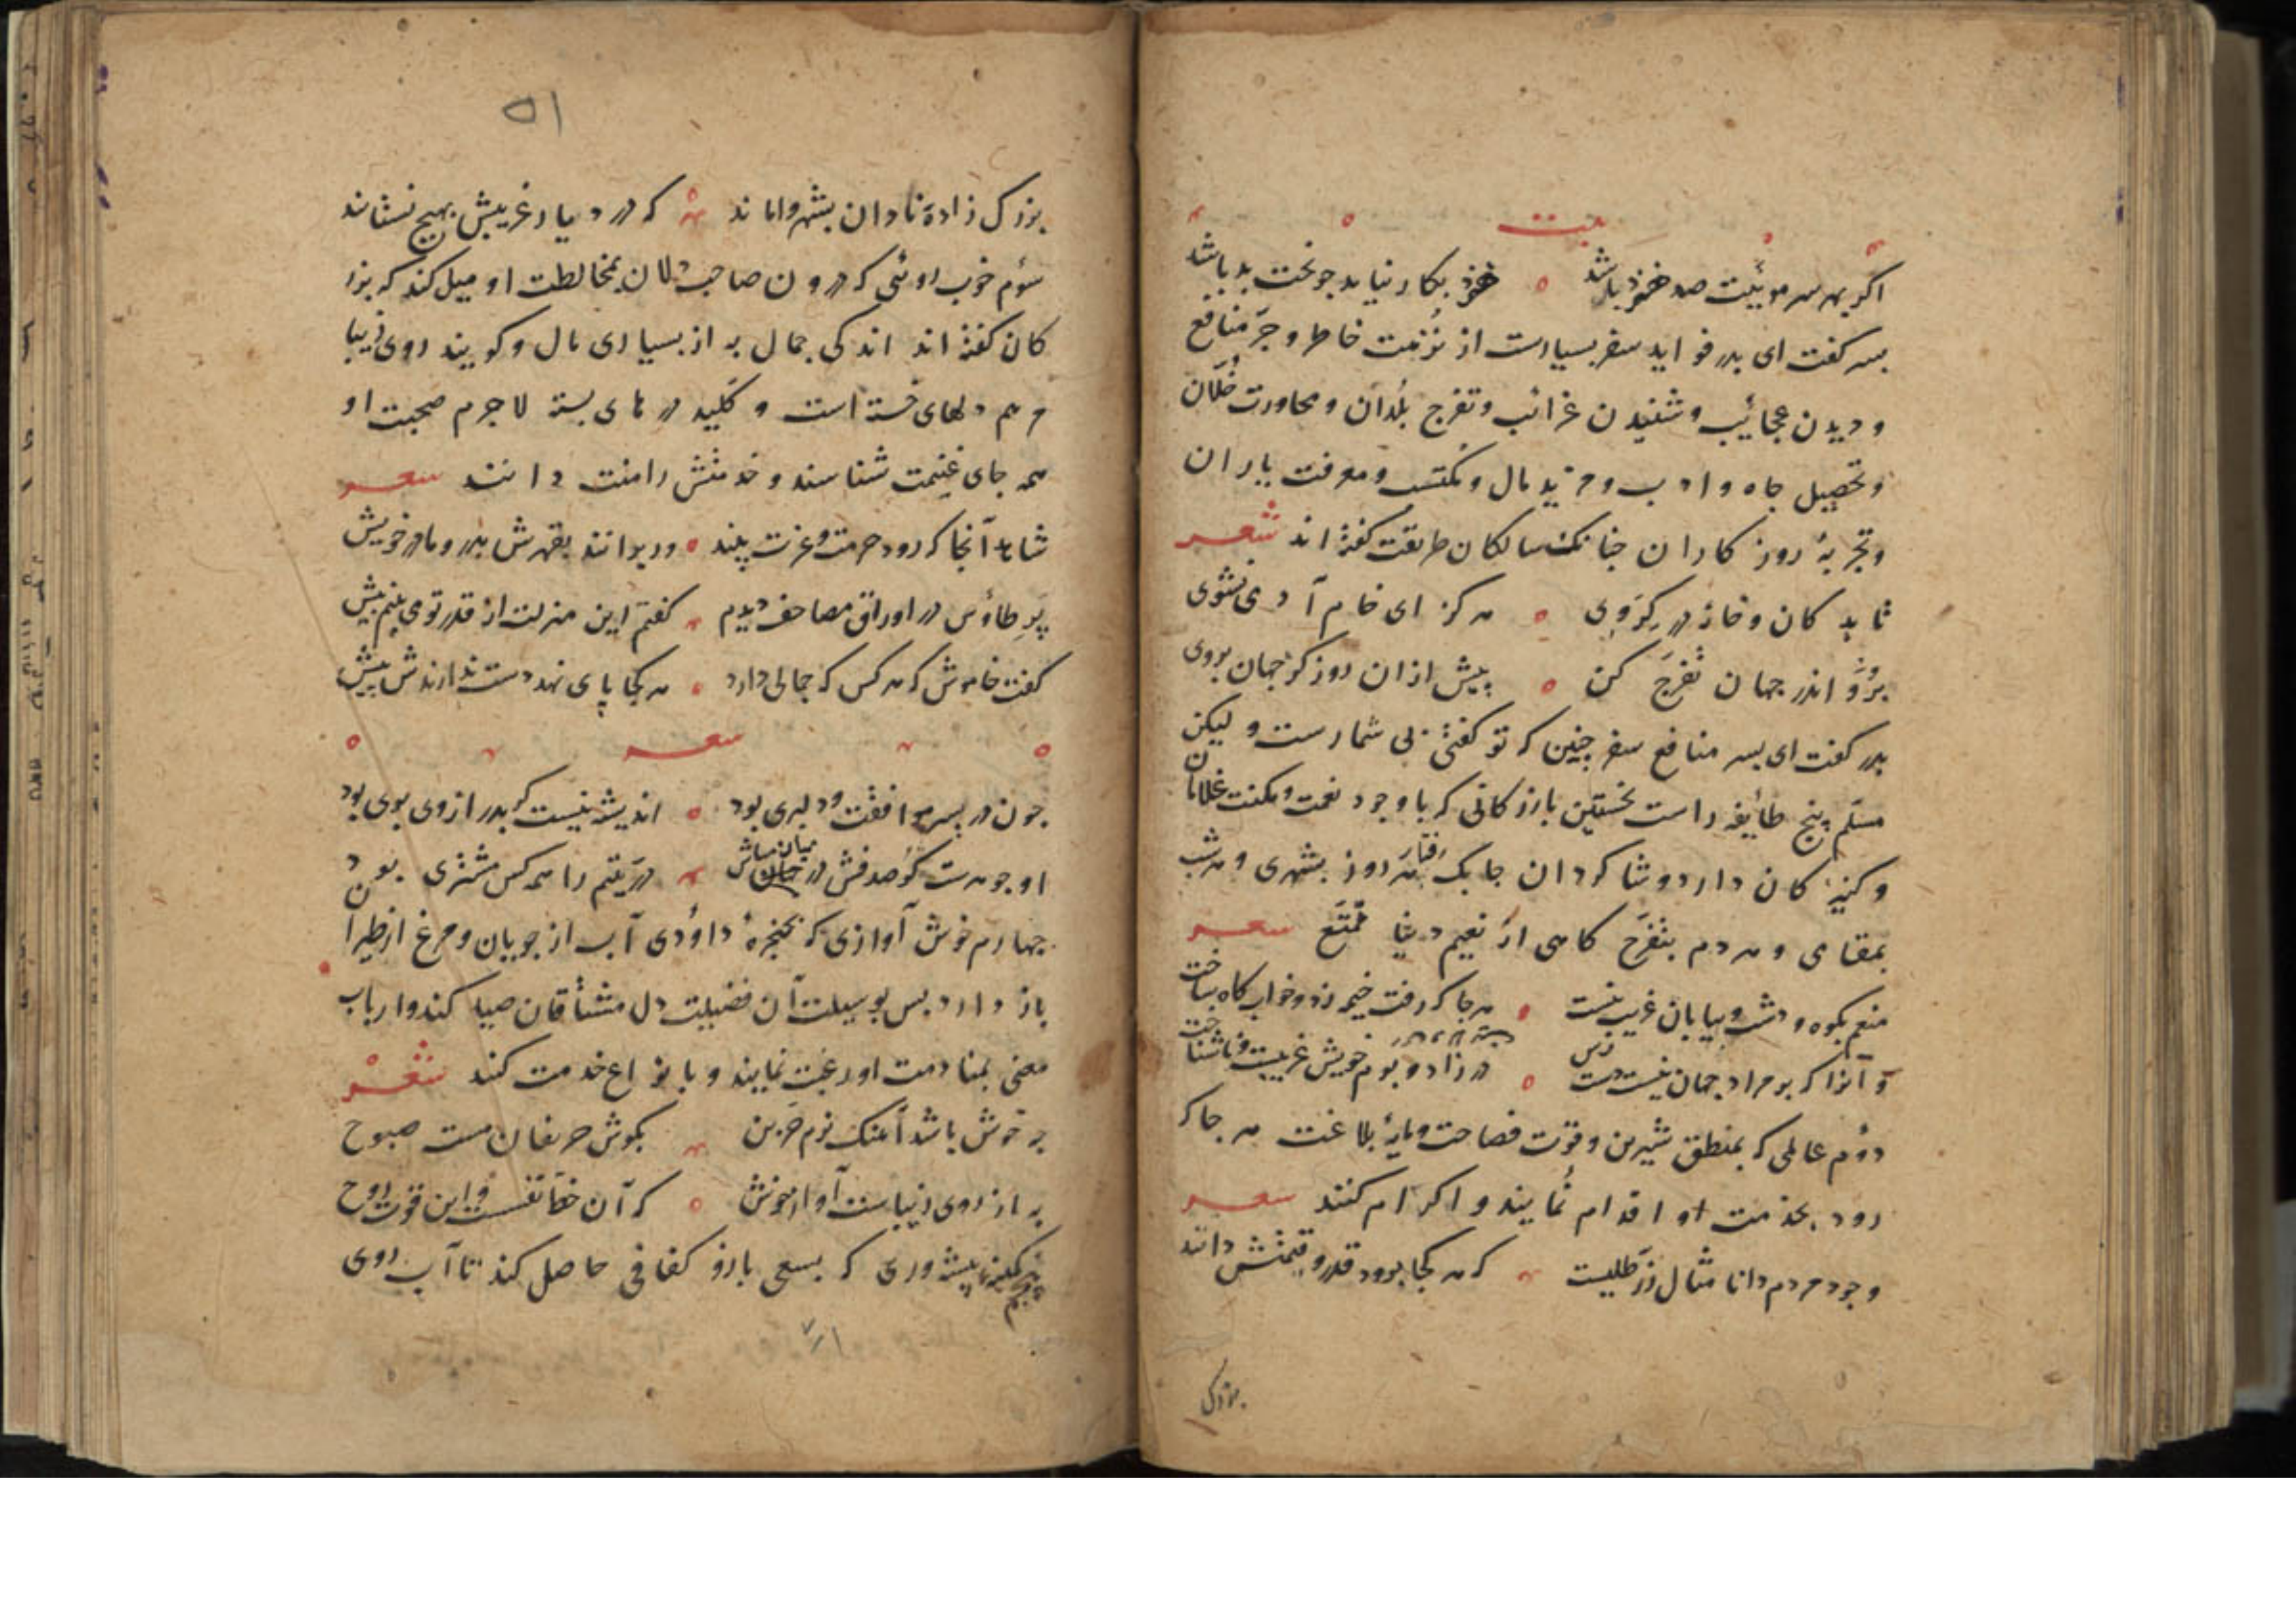 بیت
اکر بهر سر موئیت صد خرد باشد ه خرد بکار نیاید جو بخت بد باشد
بسر کفت ای بدر فواید سفر بسیارست از نزهت خاطر و جر منافع
و دیدن عجایب و شنیدن غرائب و تفرج بلدان و محاورت خلان
و تحصیل جاه و ادب و مزید مال و مکتسب و معرفت یاران
و تجربۀ روزکاران جنانک سالکان طریقت کفته اند شعر
تا بدکان و خانه در کروی ه هرکز ای خام آدمی نشوی
برو اندر جهان تفرج کن ه پیش ازان روز کز جهان بروی
بدر کفت ای بسر منافع سفر جنین که تو کفتی بی شمارست و لیکن
مسلم پنج طایفه راست نخستین بازرکانی که با وجود نعمت و مکنت غلامان
و کنیزکان دارد و شاکردان جابک رفتار هر روز بشهری و هر شب
بمقامی و هر دم بتفرج کاهی از نعیم دنیا متمتع شعر
منعم بکوه و دشت و بیابان غریب نیست ه هر جا که رفت خیمه زد و خوابکاه ساخت
و آنرا که بر مراد جهان نیست دست رس ه در زاد و بوم خویش غریبست و ناشناخت
دوم عالمی که بمنطق شیرین و قوت فصاحت و مایۀ بلاغت هر جا که
رود بخدمت او اقدام نمایند و اکرام کنند شعر
وجود مردم دانا مثال زر طلیست که هر کجا برود قدر و قیمتش دانند
بزرک
۵۱
بزرک زادۀ نادان بشهر واماند که در دیار غریبش بهیچ نستانند
سوم خوب روئی که درون صاحب دلان بمخالطت او میل کند که بزر
کان کفته اند اندکی جمال به از بسیاری مال و کویند روی زیبا
مرهم دلهای خسته است و کلید درهای بسته لاجرم صحبت او
همه جای غنیمت شناسند و خدمتش را منت دانند شعر
شاهد آنجا که رود حرمت و عزت بیند ه ور برانند بقهرش بدر و مادر خویش
پر طاؤس در اوراق مصاحف دیدم کفتم این منزلت از قدر تو می بینم بیش
کفت خاموش که هر کس که جمالی دارد ه هر کجا پای نهد دست ندارندش پیش
شعر
جون در بسر موافقت و دلبری بود ه اندیشه نیست کر بدر از وی بری بود
او جوهرست کو صدفش در میان مباش در یتیم را همه کس مشتری بود
جهارم خوش آوازی که بحنجرۀ داؤدی آب از جریان و مرغ از طیران
باز دارد بس بوسیلت آن فضیلت دل مشتاقان صید کند و ارباب
معنی بمنادمت او رغبت نمایند و بانواع خدمت کنند شعر
جه خوش باشد آهنک نرم حزین بکوش حریفان مست صبوح
به از روی زیباست آواز خوش ه که آن حظ نفسست و این قوت روح
پنجم کمینه پیشه وری که بسعی بازو کفافی حاصل کند تا آب روی